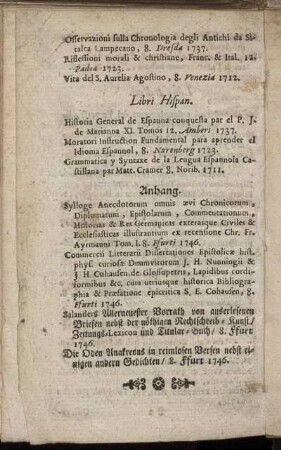 Osservazioni sulla Chronologia degli Antichi da Si-
talca Lampecano, 8. Dresda 1737.
Riflessioni morali & christiane, Franc. & Ital. 12.
Padoa 1723.
Vita del S. Aurelia Agostino, 8. Venezia 1712.
Libri Hispan.
Historia General de Espanna compuesta par el P. J.
de Marianna XI. Tomos 12. Amberi 1737.
Moratori instruction Fundamental para aprender el
Idioma Espannol, 8. Nurenberg 1723.
Grammatica y Syntaxe de la Lengua Espannola Ca-
stillana par Matt. Cramer 8. Norib. 1711.
Anhang.
Sylloge Anecdotorum omnis ævi Chronicorum,
Diplomatum, Epistolarum, Commentationum,
Historias & Res Germanicas exterasque Civiles &
Ecclesiasticas illustrantium ex recensione Chr. Fr.
Ayrmanni Tom. I. 8. Ffurti 1746.
Commercii Litterarii Dissertationes Epistolicæ hist.
phys. curiosæ Domnvirorum J. H. Nunningii &
J. H. Cohausen de Glossopetris, Lapidibus cordi-
formibus &c. cum utriusque historica Bibliogra-
phia & Præfatione epicritica S. E. Cohausen, 8.
Ffurti 1746.
Salanders Allerneuester Vorrath von auserlesenen
Briefen nebst der nöthigen Rechtschreib-Kunst/
Zeitungs-Lexicon und Titular-Buch/ 8. Ffurt
1746.
Die Oden Anakreons in reimlosen Versen nebst ei-
nigen andern Gedichten/ 8. Ffurt 1746.